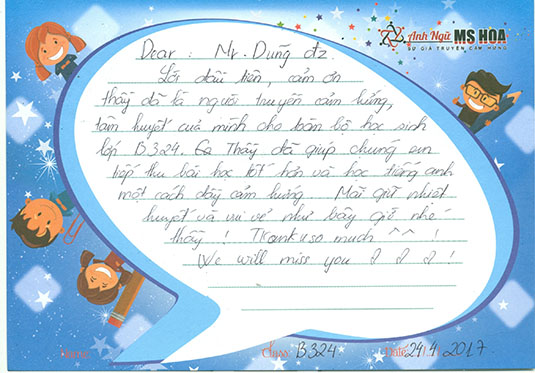 Anh Ngữ MS HOA
SỨ GIẢ TRUYỀN CẢM HỨNG
Dear : Mr. Dũng đz
Lời đầu tiên, cảm ơn
thầy đã là người truyền cảm hứng,
tâm huyết của mình cho toàn bộ học sinh
lớp B324. Thầy đã giúp chúng em
tiếp thu bài học tốt hơn và học tiếng anh
một cách đầy cảm hứng. Mãi giữ nhiệt
huyết và vui vẻ như bây giờ nhé
thầy ! Thank u so much ^^ !
We will miss you !
Class: B324 Date: 24.4.2017